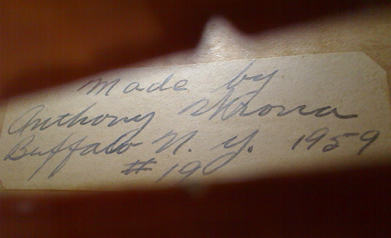 made by
Anthony Skrona
Buffalo N. Y. 1959
#19